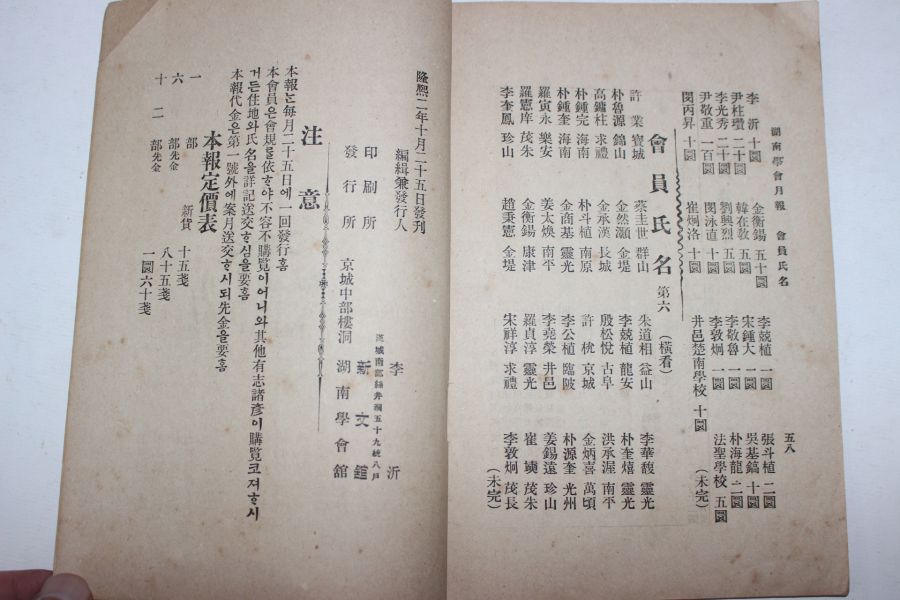 湖南學會月報 會員氏名
五八
李沂 十圜 金衡錫 五十圜 李兢植 一圜 張斗植 二圜
尹柱瓚 二十圜 韓在敎 五圜 宋鍾大 一圜 吳基鎬 十圜
李光秀 二十圜 劉興烈 五圜 李敬魯 一圜 朴海龍 二圜
尹敬重 一百圜 閔泳直 十圜 李敦炯 一圜 法聖學校 五圜
閔丙昇 十圜 崔炯洛 十圜 井邑楚南學校 十圜 (未完)
會員氏名 第六 (橫看)
許業 寶城 蔡圭世 群山 朱道相 益山 李華馥 靈光
朴魯源 錦山 金然灝 金堤 李兢植 龍安 朴奎熺 靈光
高鏞柱 求禮 金承漢 長城 殷松悅 古阜 洪承渥 南平
朴鍾完 海南 朴斗植 南原 許枕 京城 金炳喜 萬頃
朴鍾奎 海南 金商基 靈光 李公植 臨陂 朴源奎 光州
羅寅永 樂安 姜太煥 南平 李堯榮 井邑 姜錫遠 珍山
羅憲庠 茂朱 金衡錫 康津 羅貞淳 靈光 崔 茂朱
李奎鳳 珍山 趙秉憲 金堤 宋祥淳 求禮 李敦炯 茂長
(未完)
隆熙二年十月二十五日發刊
漢城南部絲井洞五十九統八戶
編緝兼發行人 李沂
印刷所 新文舘
發行所 京城中部樓洞 湖南學會舘
注意
本報는每月二十五日에一回發行홈
本會員은會規를依ᄒᆞ야不容不購覽이어니와其他有志諸彦이購覽코져ᄒᆞ시
거든住地와氏名을詳記送交ᄒᆞ심을要홈
本報代金은第一號外에案月送交ᄒᆞ시되先金을要홈
本報定價表
一部 新貨 十五戔
六部先金 八十五戔
十二部先金 一圜六十戔